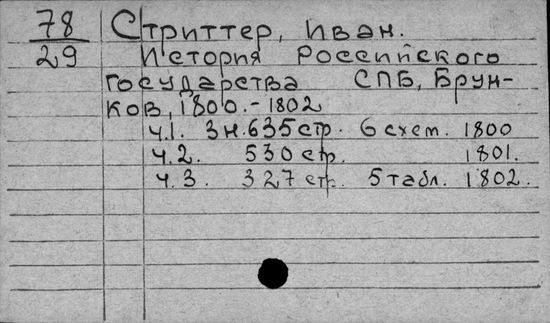 78 Стриттер, Иван.
29 История Российского
государства СПБ, Брун-
ков, 1800.-1802
ч.1. 3н.635 стр. 6 схем. 1800
ч.2. 530 стр. 1801.
ч.3. 327 стр. 5 табл. 1802.